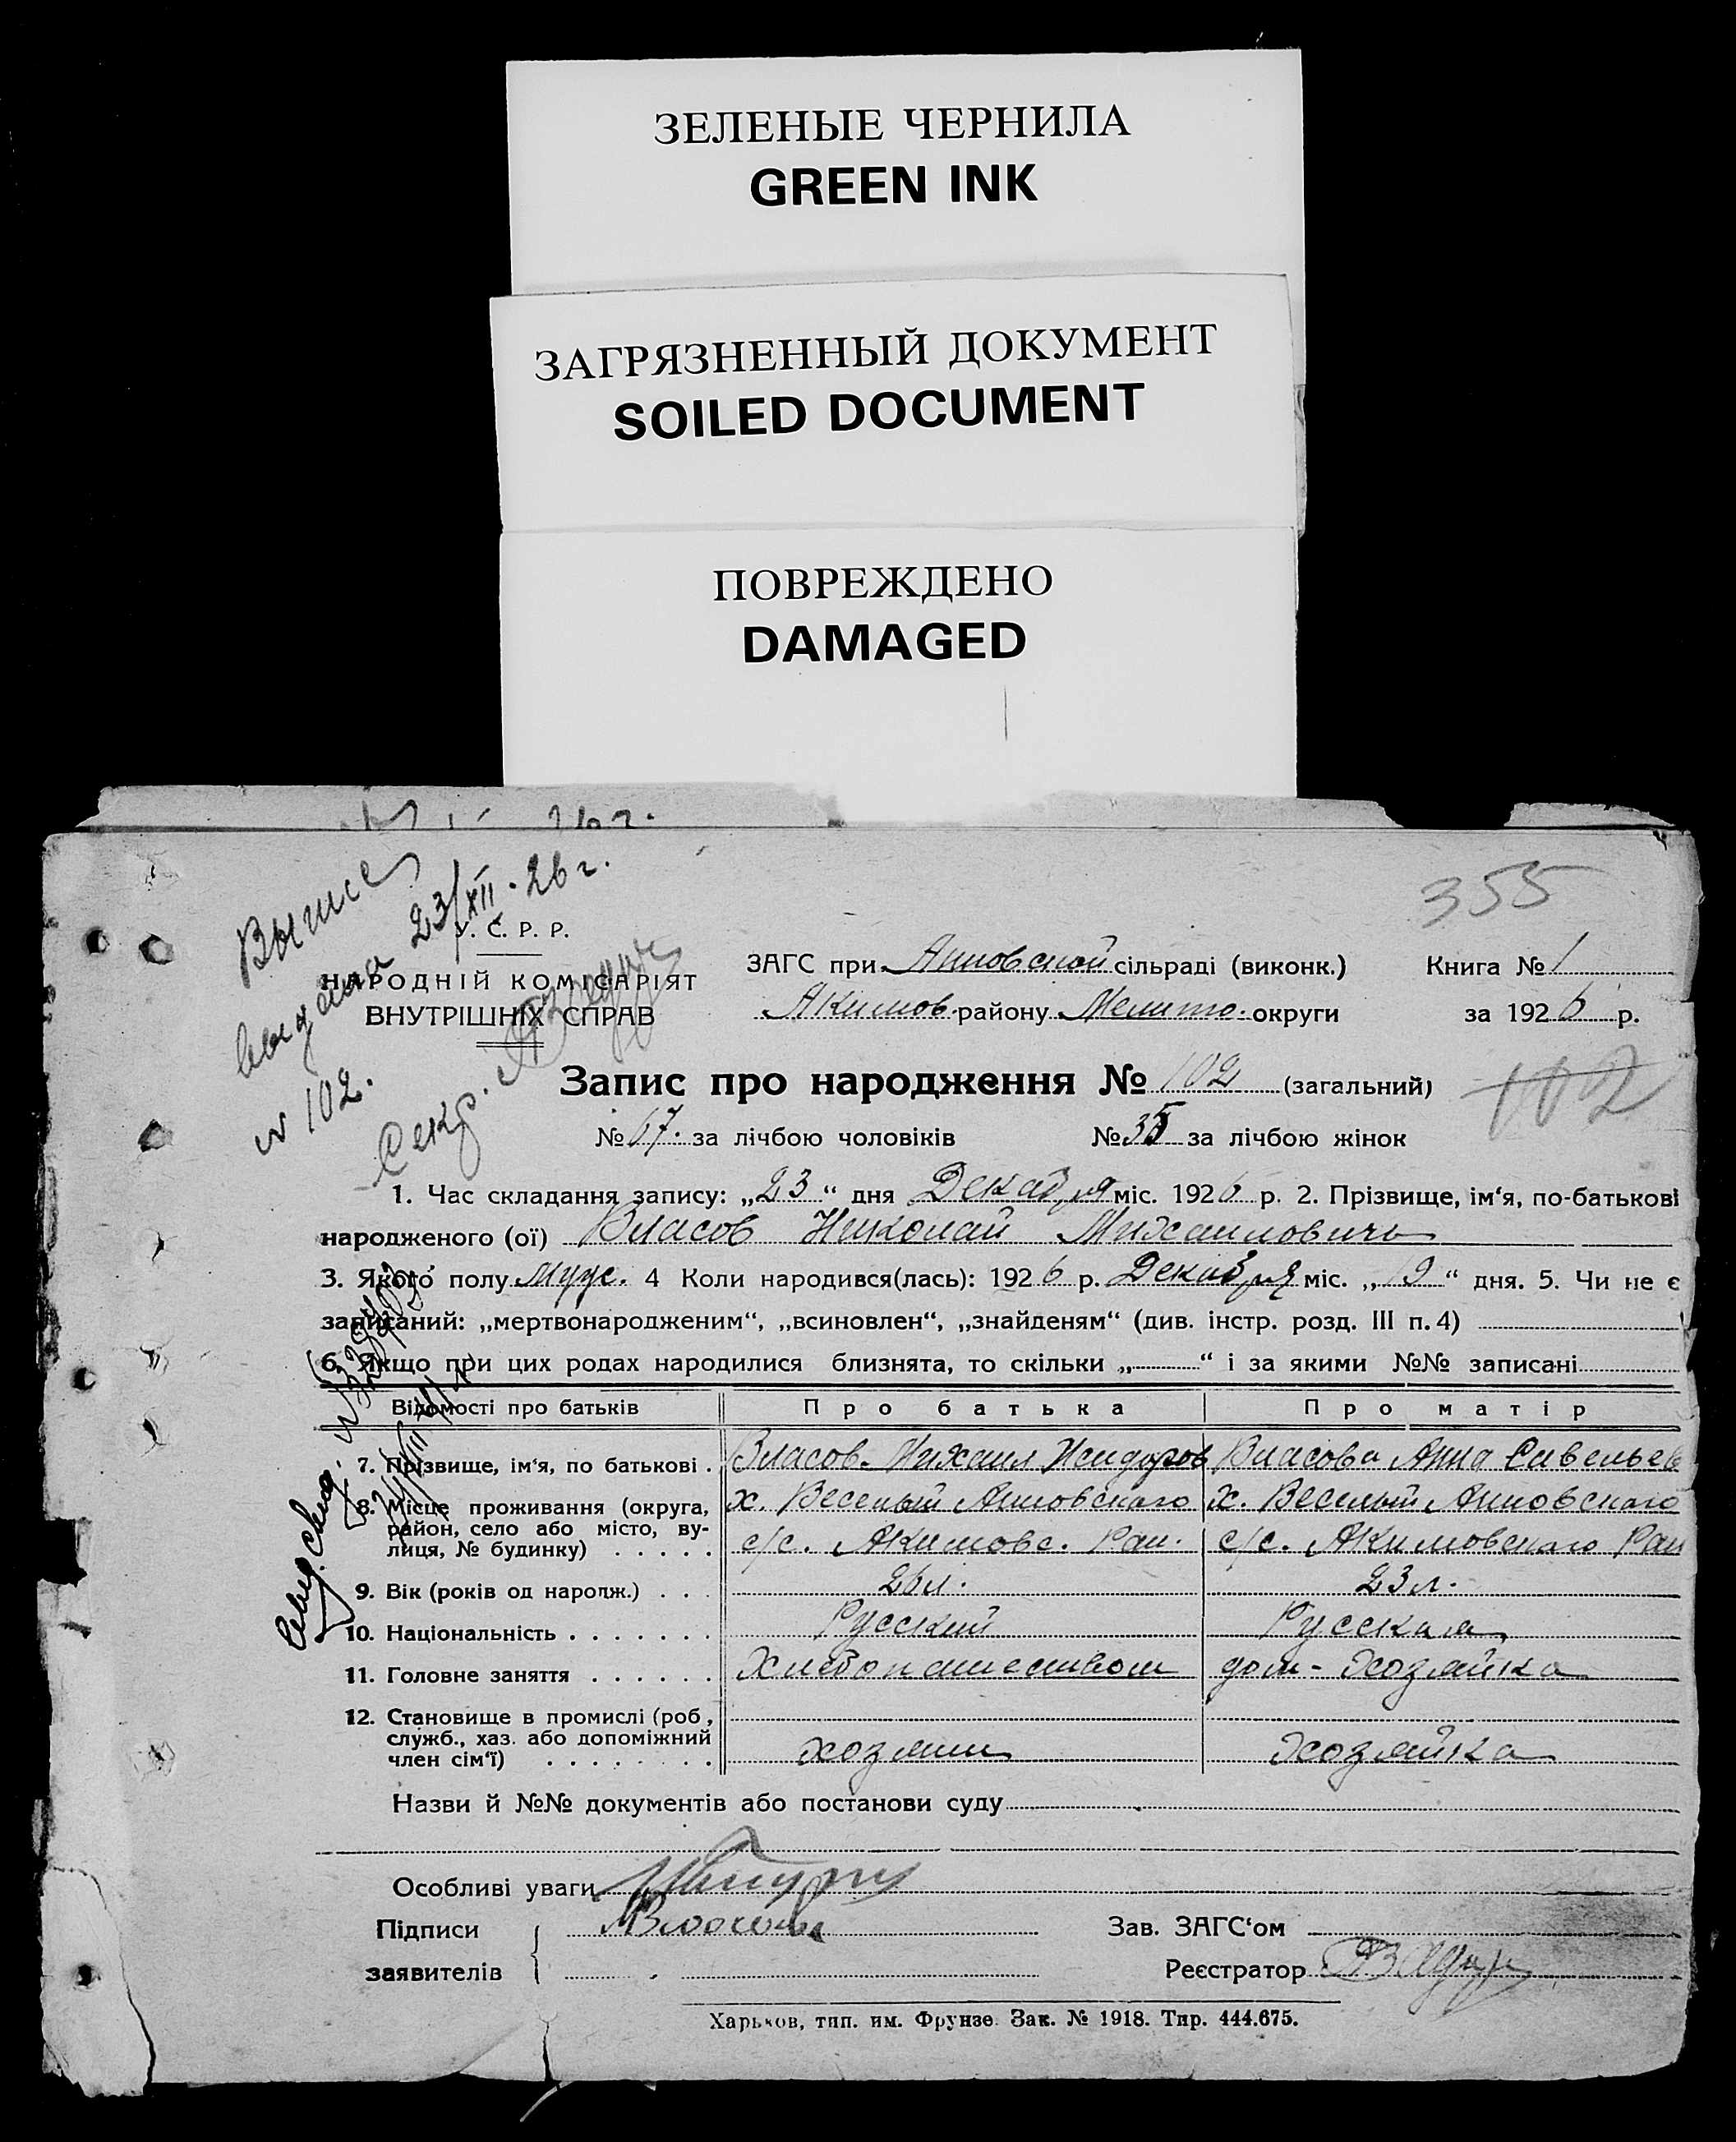 ЗЕЛЕНЫЕ ЧЕРНИЛА
GREEN INK
ЗАГРЯЗНЕННЫЙ ДОКУМЕНТ
SOILED DOCUMENT
ПОВРЕЖДЕНО
DAMAGED
26 г.
355
Выпись
выдана 23/XII-26 г.
№ 102.
Секр.
У. С. Р. Р.
НАРОДНІЙ КОМІСАРІЯТ
ВНУТРІШНІХ СПРАВ
ЗАГС при Анновской сільраді (виконк.) Книга № 1
Акимов. району Мелито. округи за 1926 р.
Запис про народження № 102 (загальний)
102
№ 67. за лічбою чоловіків № 35 за лічбою жінок
1. Час складання запису: „23“ дня Декабря міс. 1926 р. 2. Прізвище, ім‘я, по-батькові
народженого (ої) Власов Николай Михаилович
3. Якого полу муж. 4 Коли народився(лась): 1926 р. Декабря міс. „19“ дня. 5. Чи не є
записаний: „мертвонародженим“, „всиновлен“, „знайденям“ (див. інстр. розд. III п. 4)
6. Якщо при цих родах народилися близнята, то скільки „ “ і за якими №№ записані
Відомості про батьків Про батька Про матір
7. Прізвище, ім‘я, по батькові . Власов Михаил Исидоров Власова Анна Савельев
8. Місце проживання (округа, х. Веселый Анновского х. Веселый Анновского
район, село або місто, ву-
лиця, № будинку) . . . . . с/с. Акимовс. Рай. с/с. Акимовского Рай
9. Вік (років од народж.) . . . 26 л. 23 л.
10. Національність . . . . . . . Русский Русская
11. Головне заняття . . . . . . Хлебопашеством дом-хозяйка
12. Становище в промислі (роб,
служб., хаз. або допоміжний
член сім‘ї) . . . . . . . хозяин хозяйка
Назви й №№ документів або постанови суду
Особливі уваги
Підписи Власов Зав. ЗАГС‘ом
заявителів Реєстратор
Харьков, тип. им. Фрунзе. Зак. № 1918. Тир. 444.675.